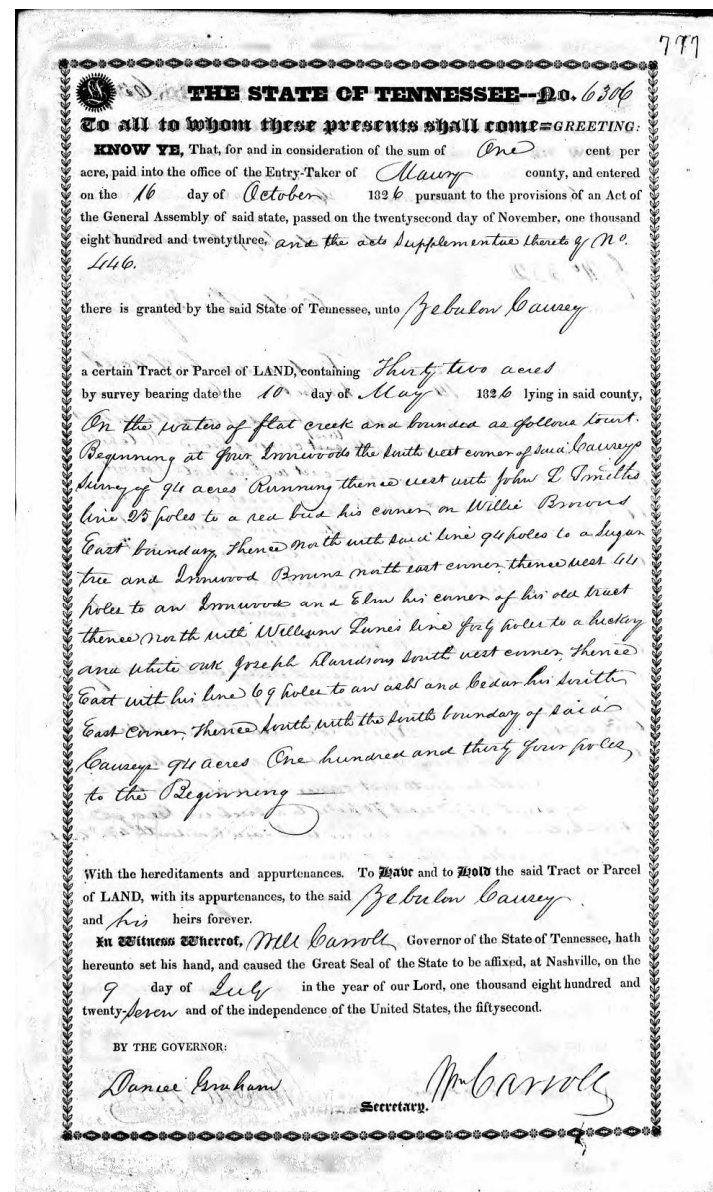 777
THE STATE OF TENNESSEE--No. 6306
To all to whom these presents shall come=GREETING:
KNOW YE, That, for and in consideration of the sum of One cent per
acre, paid into the office of the Entry-Taker of Maury county, and entered
on the 16 day of October 1826 pursuant to the provisions of an Act of
the General Assembly of said state, passed on the twentysecond day of November, one thousand
eight hundred and twentythree, and the acts Supplemental thereto of No.
446.
there is granted by the said State of Tennessee, unto Zebulon Causey
a certain Tract or Parcel of LAND, containing Thirty two acres
by survey bearing date the 10 day of May 1826 lying in said county,
On the waters of flat creek and bounded as follows towit.
Beginning at four Ironwoods the South west corner of said Causeys
Survey of 94 acres Running thence west with John L Smiths
line 25 poles to a red bud his corner on Willie Browns
East boundary, Thence North with said line 94 poles to a Sugar
tree and Ironwood Browns north east corner, thence west 44
poles to an Ironwood and Elm his corner of his old tract
thence north with William Lunes line forty poles to a hickory
and white oak Joseph Davidsons South west corner, Thence
East with his line 69 poles to an ash and Cedar his South
East corner, Thence South with the South boundary of said
Causeys 94 acres One hundred and thirty four poles,
to the Beginning
With the hereditaments and appurtenances. To Have and to Hold the said Tract or Parcel
of LAND, with its appurtenances, to the said Zebulon Causey
and his heirs forever.
In Witness Whereof, Will Carroll, Governor of the State of Tennessee, hath
hereunto set his hand, and caused the Great Seal of the State to be affixed, at Nashville, on the
9 day of July in the year of our Lord, one thousand eight hundred and
twenty-Seven and of the independence of the United States, the fiftysecond.
BY THE GOVERNOR:
Daniel Graham Wm Carroll
Secretary.